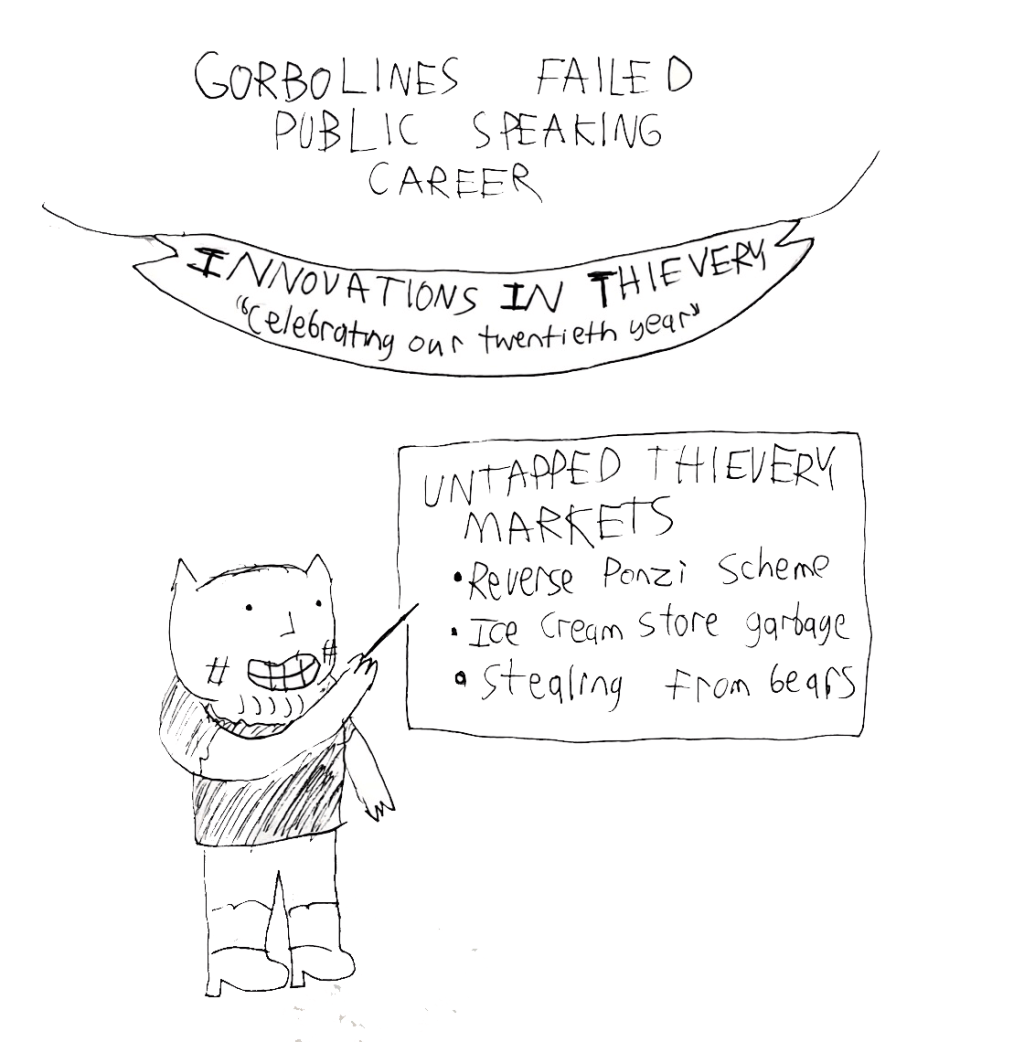 GORBOLINES FAILED
PUBLIC SPEAKING
CAREER
INNOVATIONS IN THIEVERY
"Celebrating our twentieth year"
UNTAPPED THIEVERY
MARKETS
• Reverse Ponzi Scheme
• Ice Cream Store garbage
• Stealing From bears